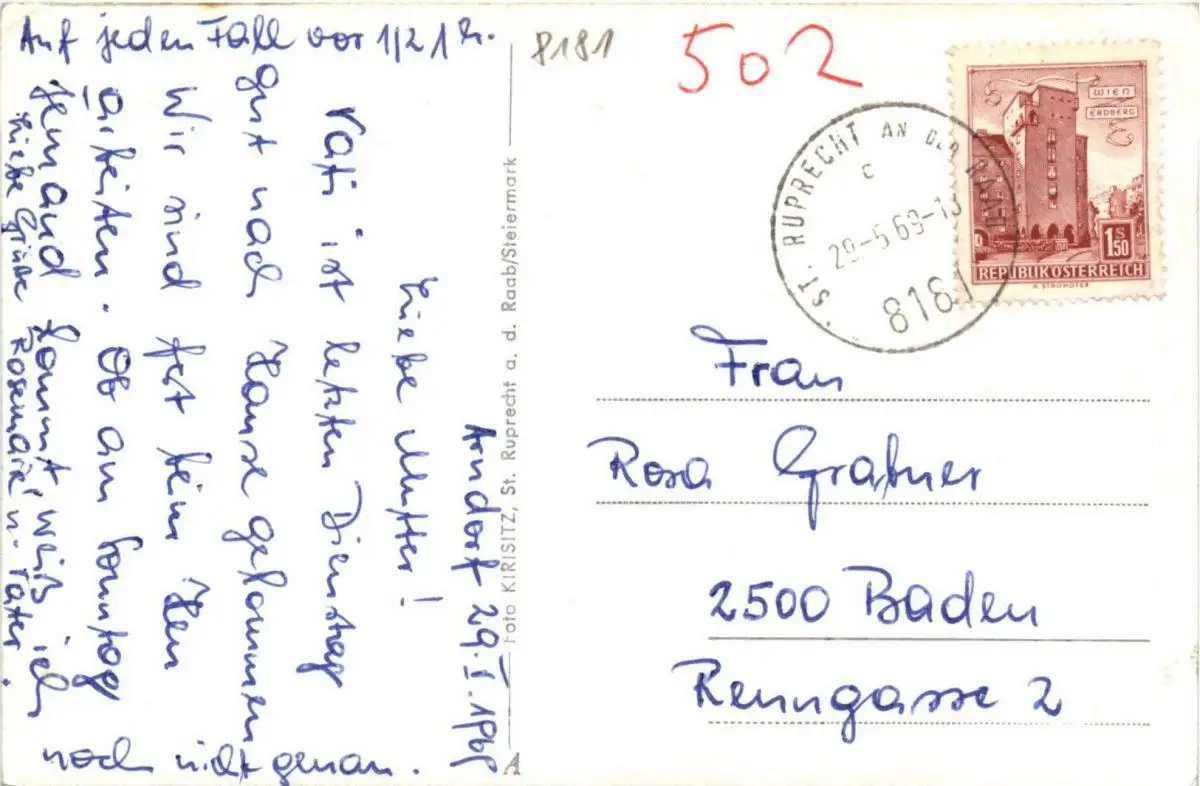 Arndorf 29.V.1969
Liebe Mutter!
Vati ist letzten Dienstag
gut nach Hause gekommen
Wir sind fest beim Heu
arbeiten. Ob am Sonntag
jemand kommt, weiß ich
noch nicht genau.
Auf jeden Fall vor 1/2 1 h.
Liebe Grüße Rosemarie u. Vater
Foto KIRISITZ, St. Ruprecht a. d. Raab/Steiermark
A
8181
502
WIEN
ERDBERG
1 S 50
REPUBLIK ÖSTERREICH
H. STROHOFER
ST. RUPRECHT AN DER RAAB
c
29-5 69-13
8181
Frau
Rosa Grabner
2500 Baden
Renngasse 2